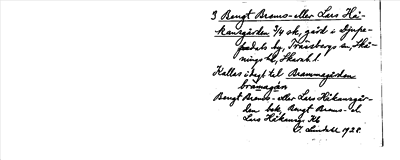 3 Bengt Brams- eller Lars Hå-
kansgården 3/4 sk, gård i Djupe-
by, Tranbergs sn, Skå-
nings hd, Skarab. l.
Kallas i dagl tal Brammagården
bråmagårn
Bengt Brams- eller Lars Håkansgår-
den bok, Bengt Brams- el.
Lars Håkansg. Kb
C. Lindell 1928.